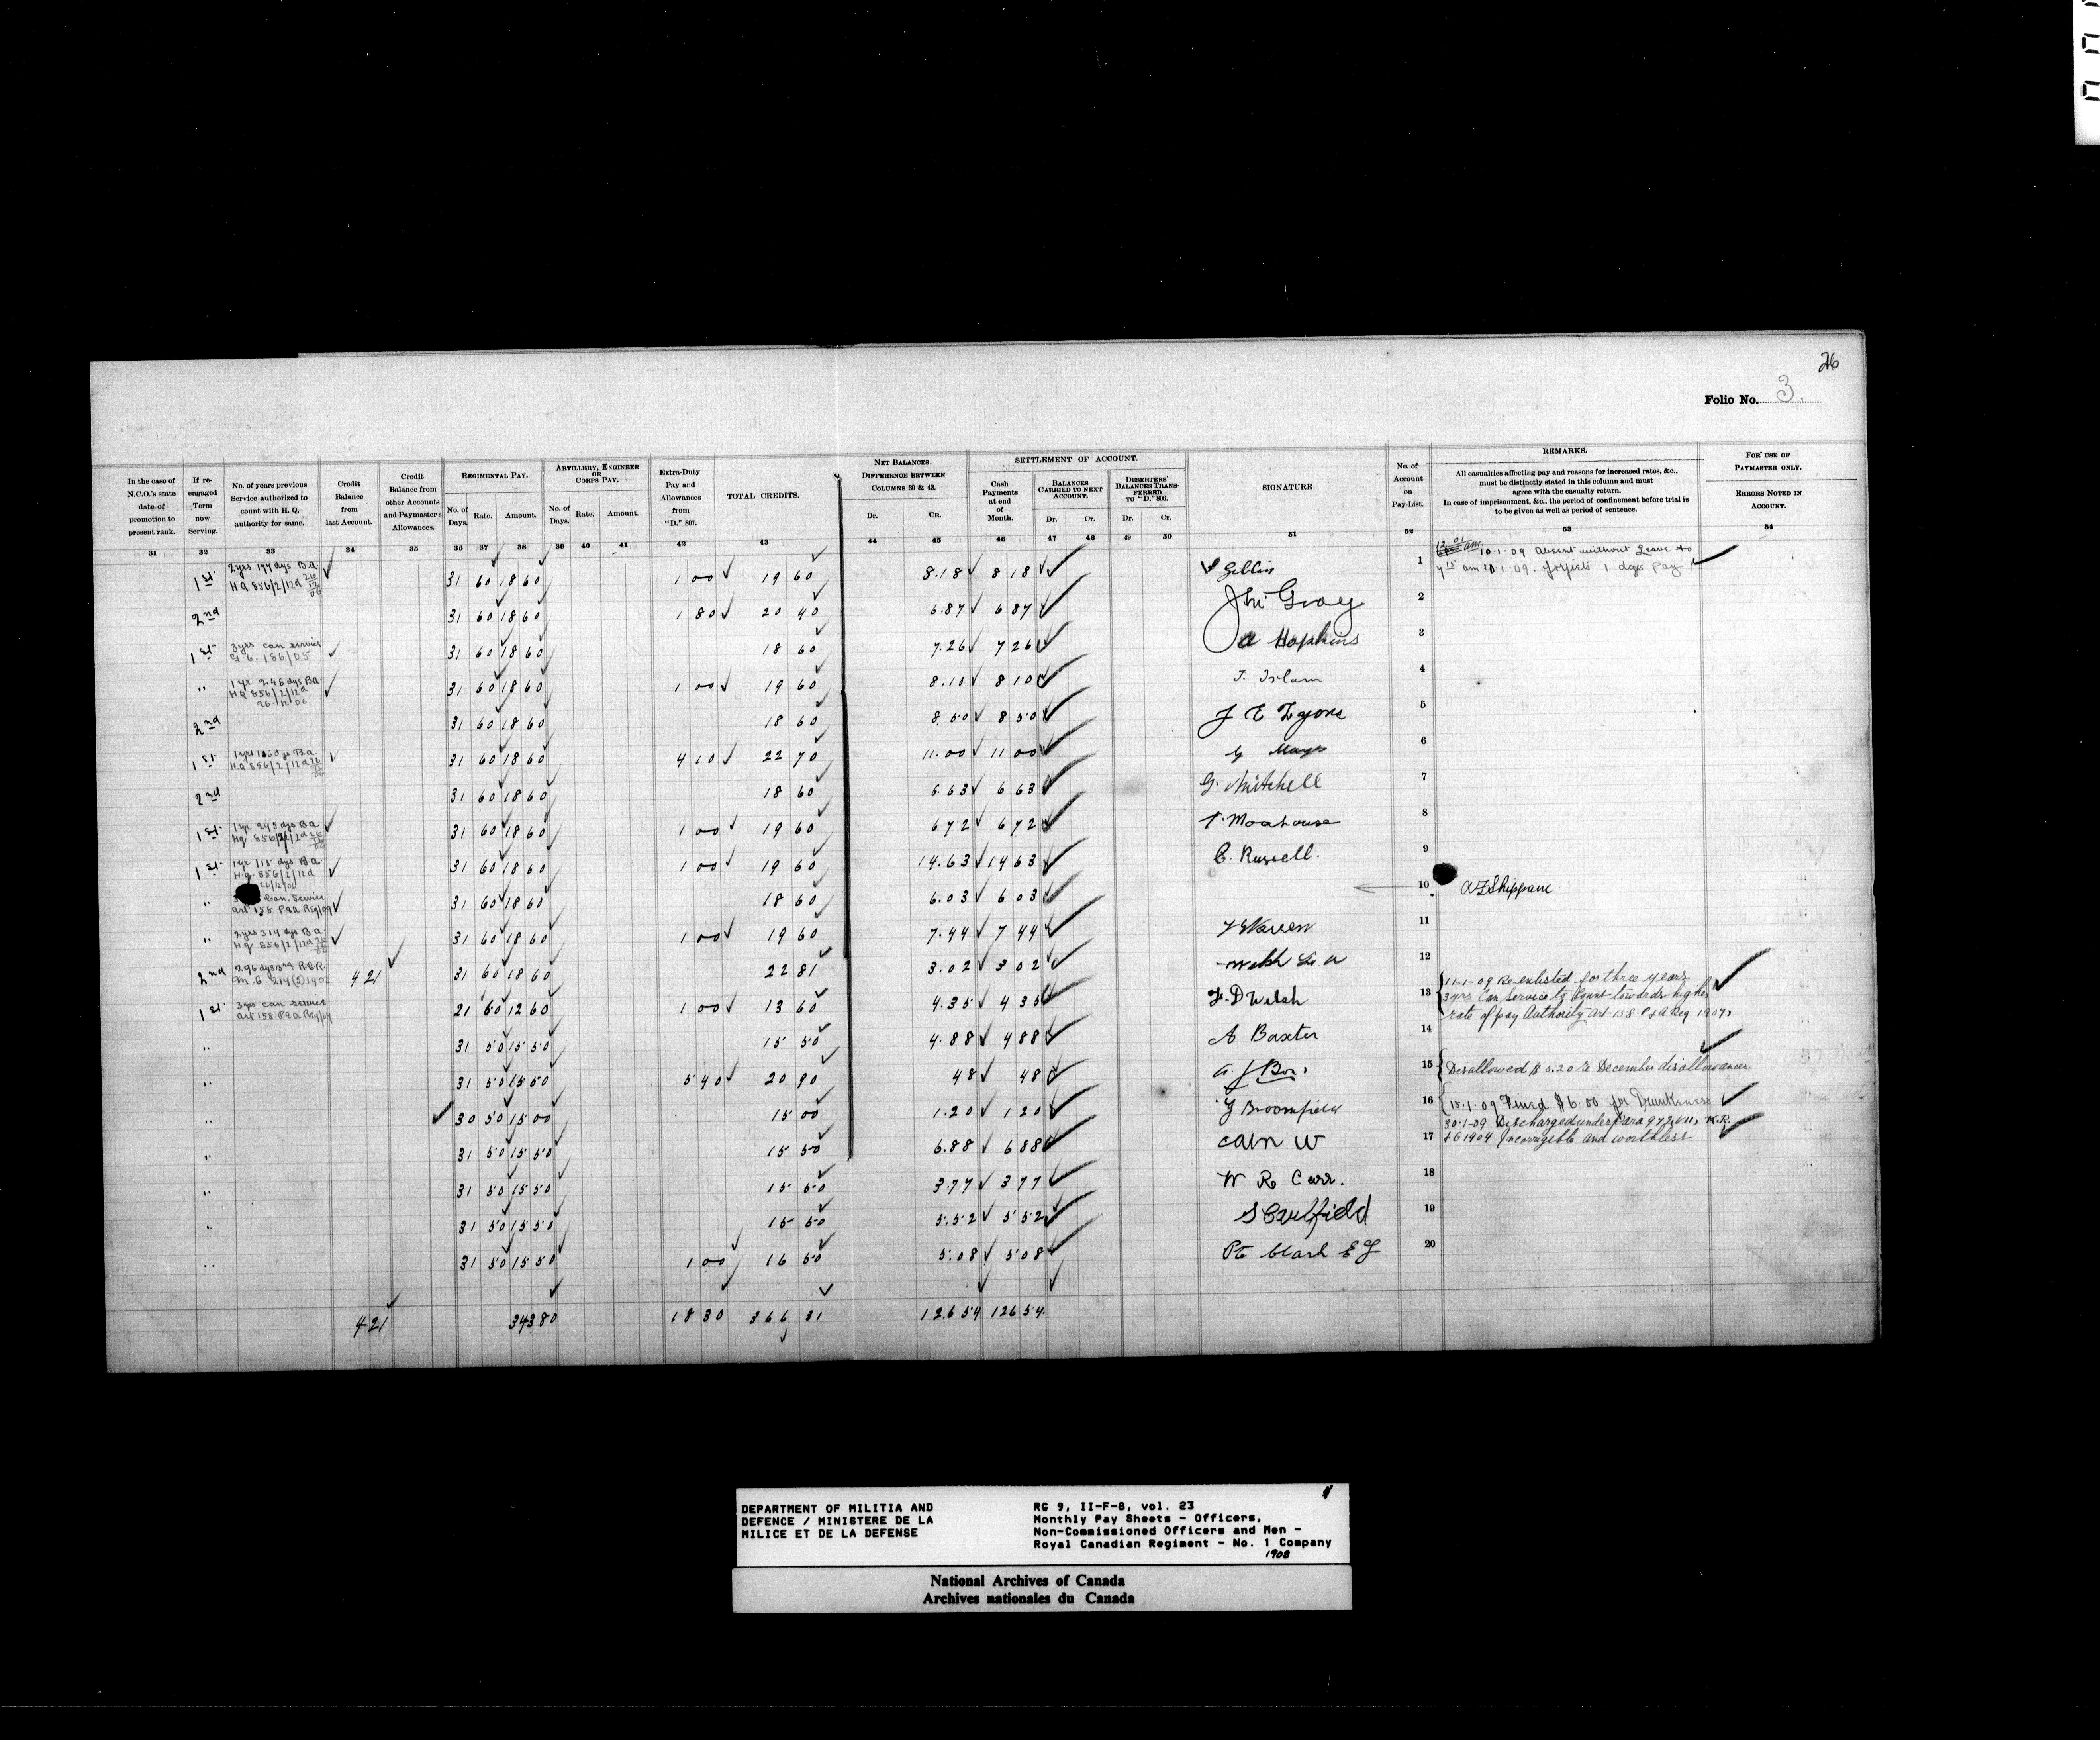 26
Folio No. 3.
In the case of N.C.O.'s state date of promotion to present rank.
If re-engaged Term now Serving.
No. of years previous Service authorized to count with H. Q. authority for same.
Credit Balance from last Account.
Credit Balance from other Accounts and Paymaster's Allowances.
REGIMENTAL PAY.
No. of Days. Rate. Amount.
ARTILLERY, ENGINEER OR CORPS PAY.
No. of Days. Rate. Amount.
Extra-Duty Pay and Allowances from "D." 807.
TOTAL CREDITS.
NET BALANCES.
DIFFERENCE BETWEEN COLUMNS 30 & 43.
Dr. Cr.
SETTLEMENT OF ACCOUNT.
Cash Payments at end of Month.
BALANCES CARRIED TO NEXT ACCOUNT.
Dr. Cr.
DESERTERS' BALANCES TRANSFERRED TO "D." 806.
Dr. Cr.
SIGNATURE
No. of Account on Pay-List.
REMARKS.
All casualties affecting pay and reasons for increased rates, &c.,
must be distinctly stated in this column and must
agree with the casualty return.
In case of imprisonment, &c., the period of confinement before trial is
to be given as well as period of sentence.
FOR USE OF PAYMASTER ONLY.
ERRORS NOTED IN ACCOUNT.
31 32 33 34 35 36 37 38 39 40 41 42 43 44 45 46 47 48 49 50 51 52 53 54
1st 31 60 18 60 1 00 19 60 8.18 8 18 1 10.1.09 Absent without Leave to
am 10.1.09. forfeits 1 days Pay
2nd 31 60 18 60 1 80 20 40 6.87 6 87 Gray 2
1st 3yrs can service 186/05 31 60 18 60 18 60 7.26 7 26 A Hopkins 3
" 1 yr 248 dys BA HQ 856/2/12d 26/12/06 31 60 18 60 1 00 19 60 8.10 8 10 4
2nd 31 60 18 60 18 60 8.50 8 50 J E Lyons 5
1st HQ 856/2/12d 31 60 18 60 4 10 22 70 11.00 11 00 G Mays 6
31 60 18 60 18 60 6.63 6 63 G. Mitchell 7
1st 1 yr 245 dys BA 31 60 18 60 1 00 19 60 6 72 6 72 8
1st 1 yr 115 dys BA HQ 856/2/12d 31 60 18 60 1 00 19 60 14.63 14 63 C. Russell. 9
" Can. Service art 158 P&A Reg/07 31 60 18 60 18 60 6.03 6 03 10 A F Shippam
" 2yrs 314 dys BA HQ 856/2/12d 31 60 18 60 1 00 19 60 7.44 7 44 Warren 11
2nd 296 dys 3rd R.C.R. 214(5)1902 4 21 31 60 18 60 22 81 3.02 3 02 12
1st 3yrs can service art 158 P&A Reg/07 21 60 12 60 1 00 13 60 4.35 4 35 F. D Walsh 13 11-1-09 Re enlisted for three years
3yrs Can Service to Count towards higher
rate of pay Authority Art-158 P & A Reg 1907
" 31 50 15 50 15 50 4.88 4 88 A Baxter 14
" 31 50 15 50 5 40 20 90 48 48 15 Disallowed $5.20 December disallowances
" 30 50 15 00 15 00 1.20 1 20 Broomfield 16 15.1.09 Fined $6.00 for Drunkiness
" 31 50 15 50 15 50 6.88 6 88 Cain W 17 30.1-09 Discharged under para K.R.
1904 Incorrigible and worthless
" 31 50 15 50 15 50 3.77 3 77 W R Carr. 18
" 31 50 15 50 15 50 5.52 5 52 S Caulfield 19
" 31 50 15 50 1 00 16 50 5.08 5 08 Pte Clark E J 20
4 21 343 80 18 30 366 31 126 54 126 54
DEPARTMENT OF MILITIA AND
DEFENCE / MINISTERE DE LA
MILICE ET DE LA DEFENSE
RG 9, II-F-8, vol. 23
Monthly Pay Sheets - Officers,
Non-Commissioned Officers and Men -
Royal Canadian Regiment - No. 1 Company
1908
National Archives of Canada
Archives nationales du Canada